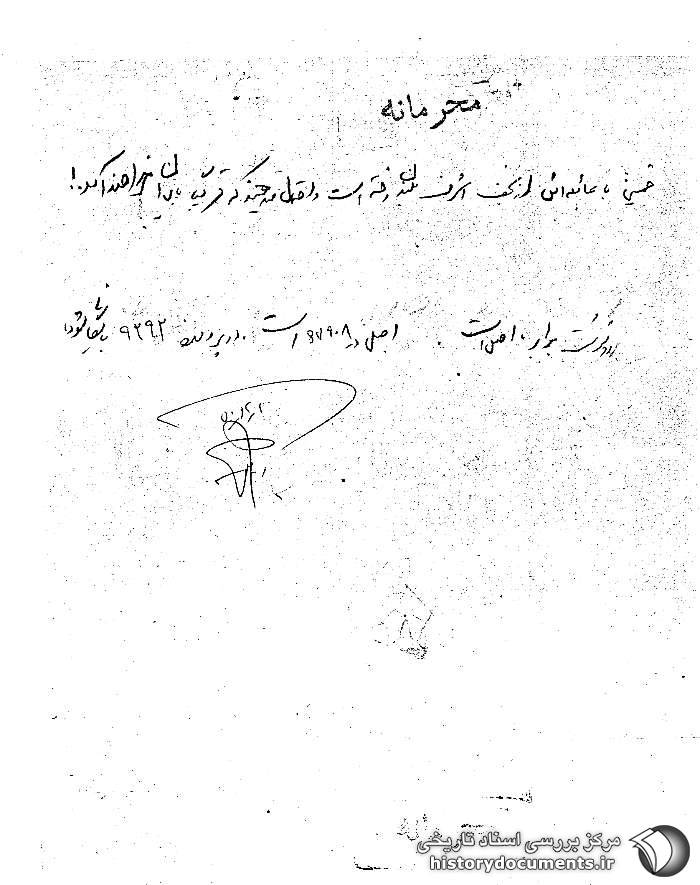 محرمانه
خمینی با عائله‌اش از نجف اشرف بلندن رفته است و احتمال میدهند که قریباً بایران نیز خواهند آمد!
رونوشت برابر با اصل است. اصل در ۹۷۹۰۸ است. در پرونده ۹۲۹۲ بایگانی شود
مرکز بررسی اسناد تاریخی
historydocuments.ir